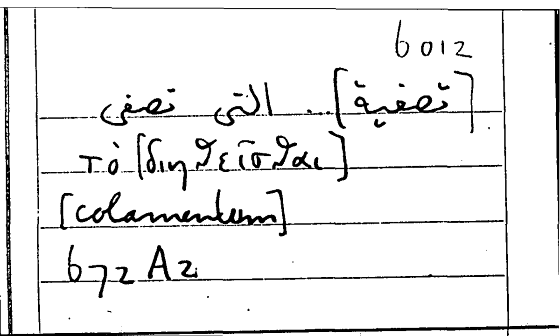 6012
[تصفية] ... التى تصفى
τὸ [διηθεῖσθαι]
[colamentum]
672 A2